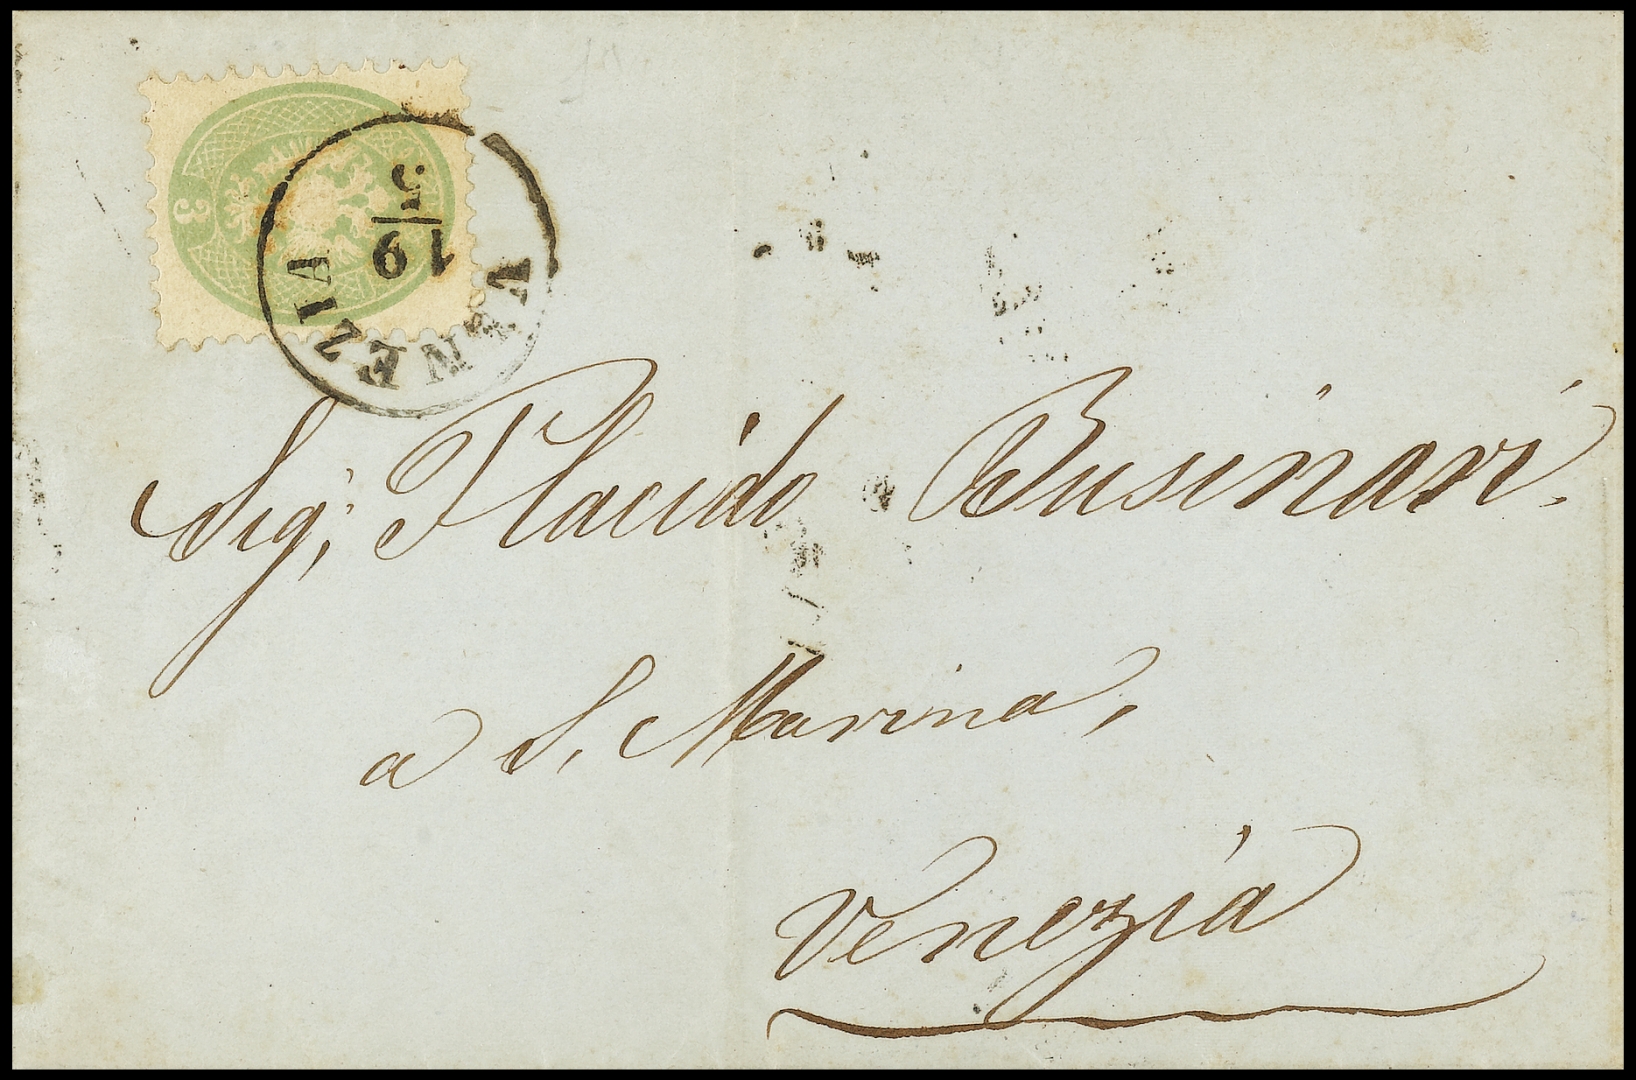 3
VENEZIA
19
5
Sig:
Placido Businari.
a S. Marina,
Venezia